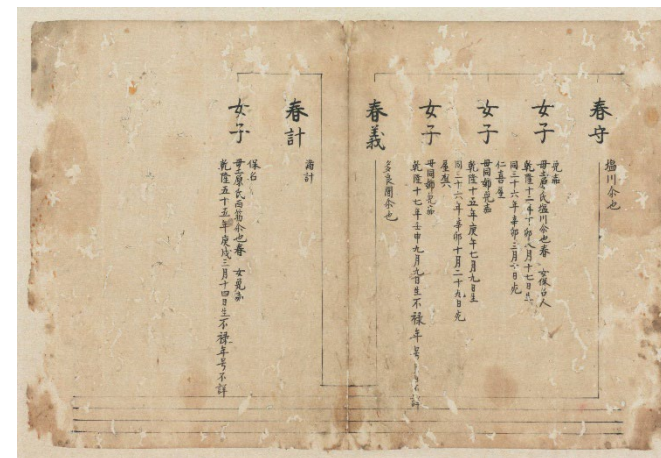 春守
塩川尓也
女子
兒嘉
母土原氏塩川尓也春 女保台人
乾隆十二年丁卯八月十七日生
同三十六年辛卯三月 日死
女子
仁喜屋
母同鄉兒嘉
乾隆十五年庚午七月九日生
同三十六年辛卯十月二十九日死
女子
屋與
母同鄉兒嘉
乾隆十七年壬申九月九日生不祿年号 詳
春義
多良間尓也
春計
蒲計
女子
保台
母土原氏西筋尓也春 女兒嘉
乾隆五十五年庚戌三月十四日生不祿年号不詳